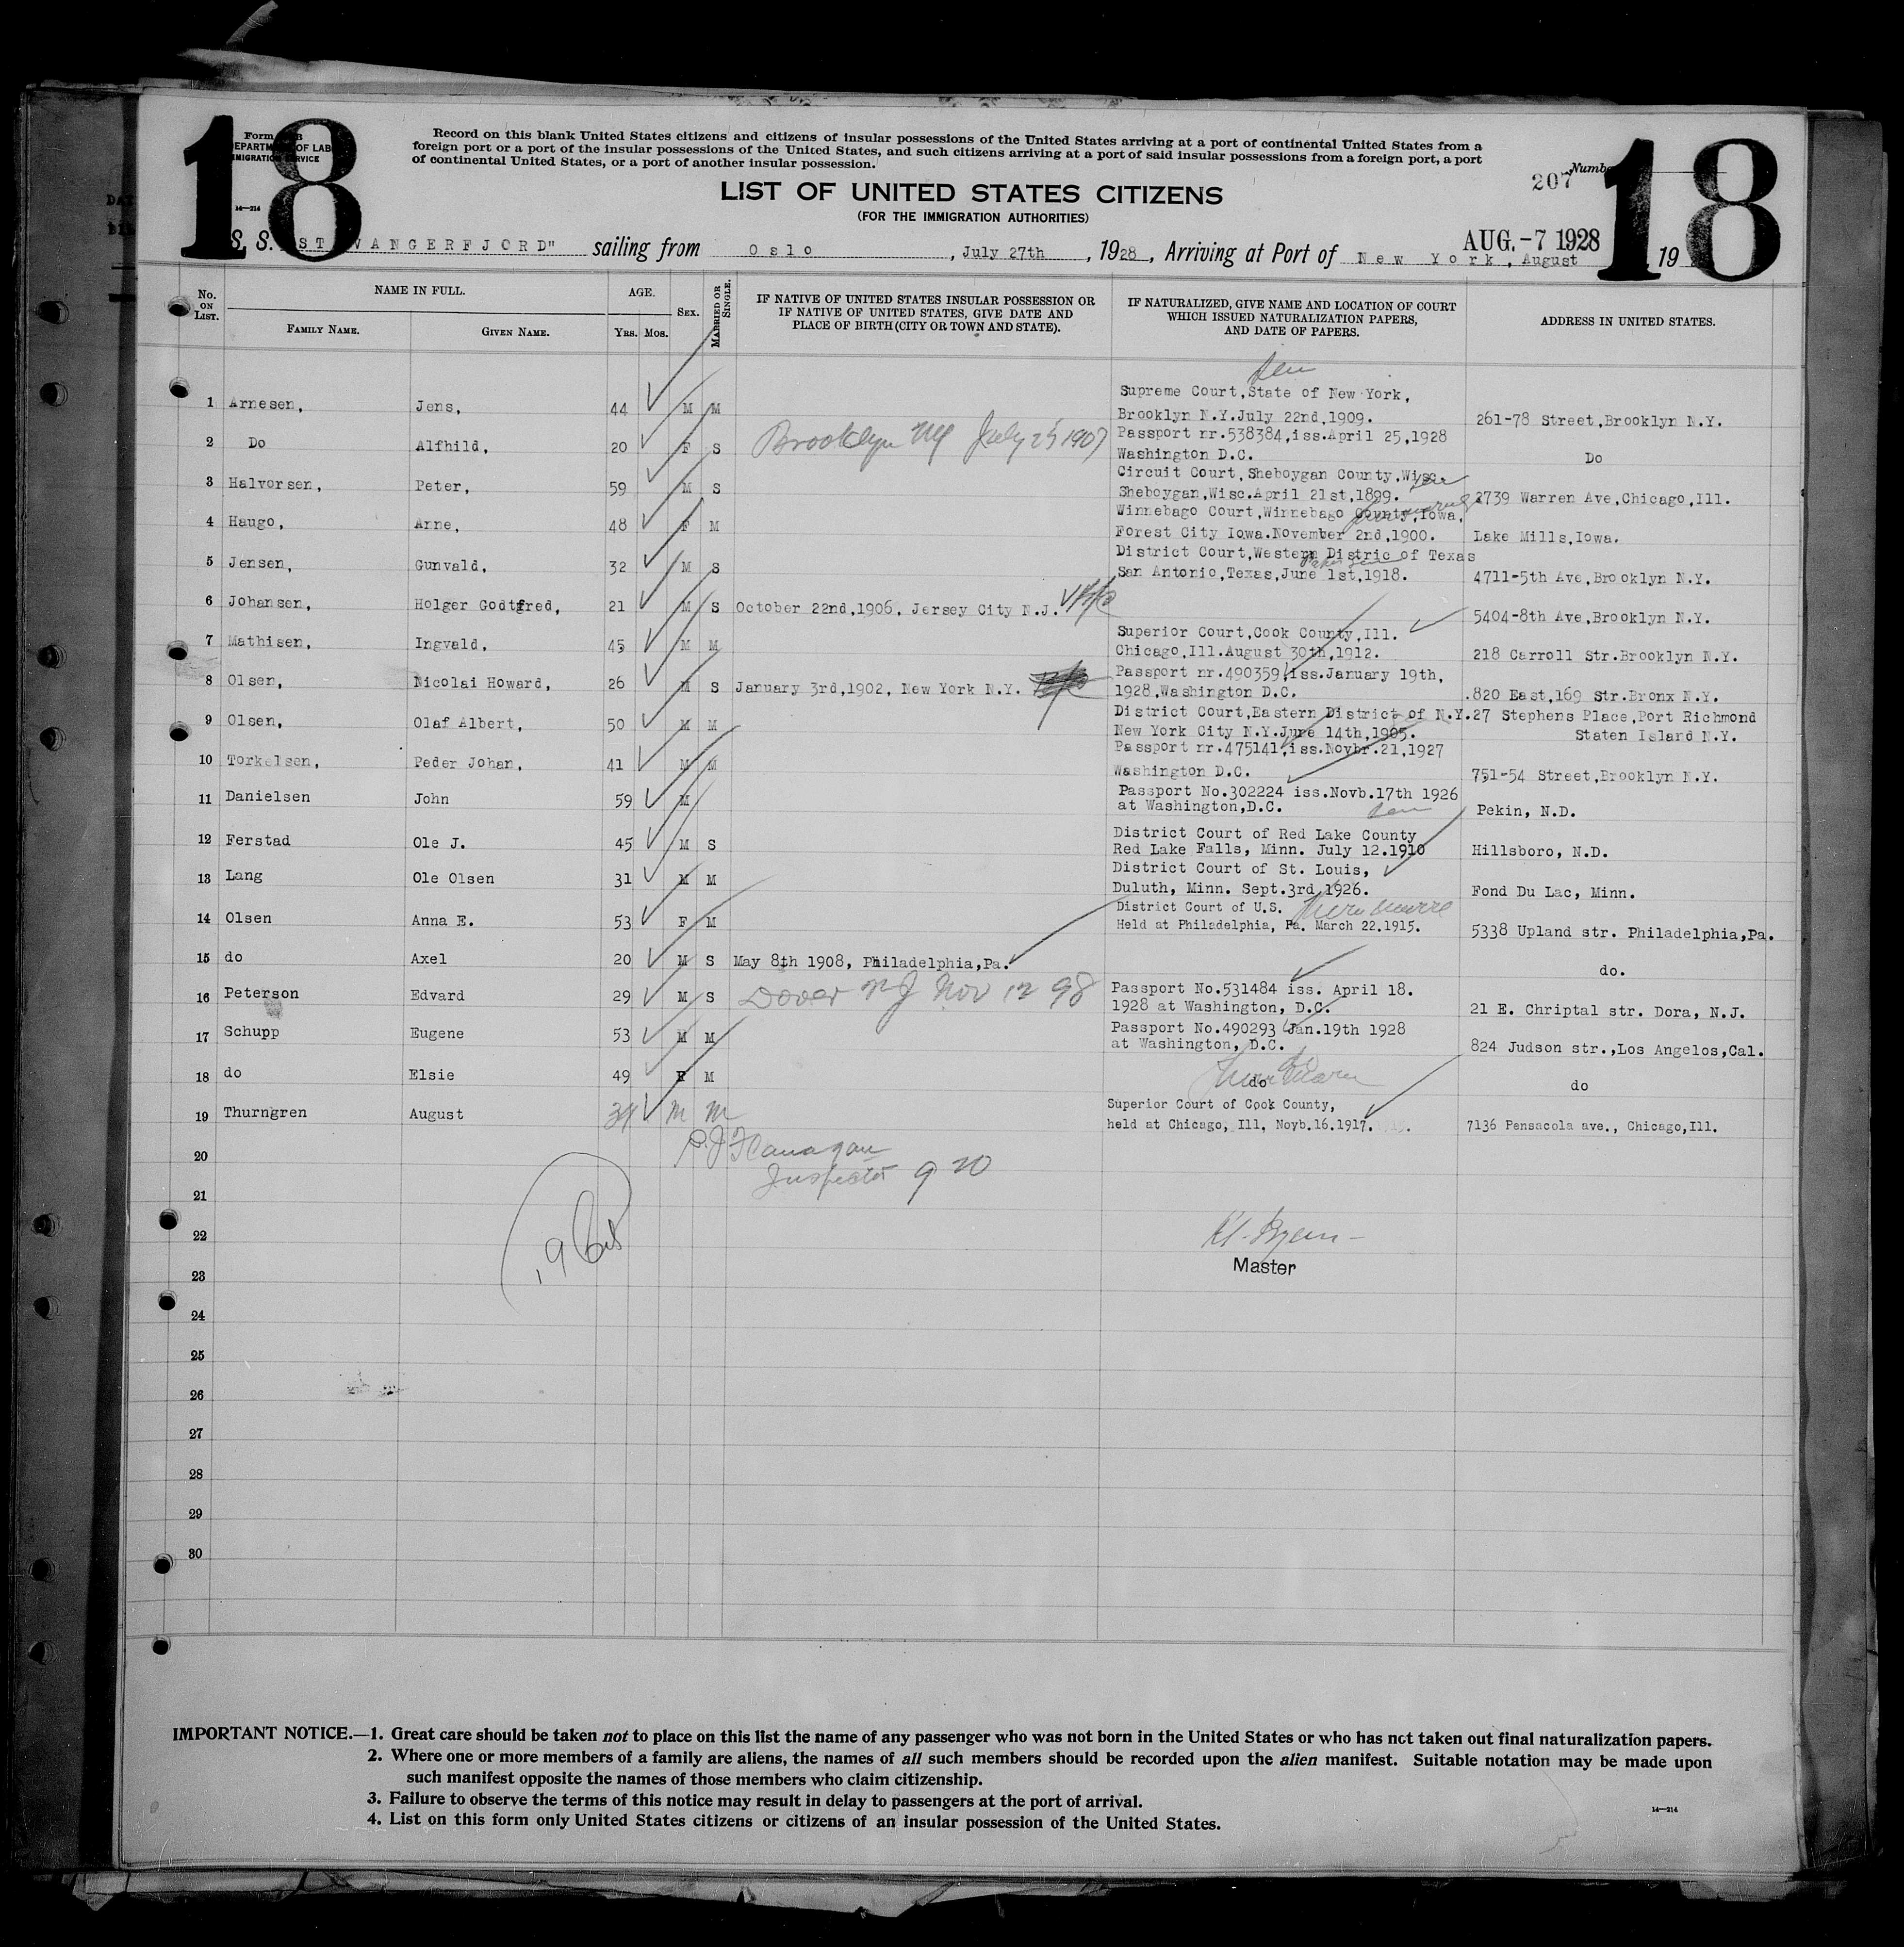 18
18
Form
DEPARTMENT OF LAB
IMMIGRATION SERVICE
14—214
Record on this blank United States citizens and citizens of insular possessions of the United States arriving at a port of continental United States from a
foreign port or a port of the insular possessions of the United States, and such citizens arriving at a port of said insular possessions from a foreign port, a port
of continental United States, or a port of another insular possession.
207
LIST OF UNITED STATES CITIZENS
(FOR THE IMMIGRATION AUTHORITIES)
S. S. STAVANGERFJORD" sailing from Oslo, July 27th, 1928, Arriving at Port of New York, August 19
AUG.-7 1928
No. on List.
NAME IN FULL.
Family Name.
Given Name.
AGE.
Yrs. Mos.
Sex.
Married or Single.
IF NATIVE OF UNITED STATES INSULAR POSSESSION OR
IF NATIVE OF UNITED STATES, GIVE DATE AND
PLACE OF BIRTH (CITY OR TOWN AND STATE).
IF NATURALIZED, GIVE NAME AND LOCATION OF COURT
WHICH ISSUED NATURALIZATION PAPERS,
AND DATE OF PAPERS.
ADDRESS IN UNITED STATES.
1 Arnesen, Jens, 44 M M Supreme Court,State of New York,
Brooklyn N.Y.July 22nd,1909. 261-78 Street,Brooklyn N.Y.
2 Do Alfhild, 20 F S Brooklyn NY July 25 1907 Passport nr.538384,iss.April 25,1928
Washington D.C. Do
3 Halvorsen, Peter, 59 M S Circuit Court,Sheboygan County,Wisc.
Sheboygan,Wisc.April 21st,1899. 2739 Warren Ave,Chicago,Ill.
4 Haugo, Anne, 48 F M Winnebago Court,Winnebago County,Iowa,
Forest City Iowa.November 2nd,1900. Lake Mills,Iowa.
5 Jensen, Gunvald, 32 M S District Court,Western Distric of Texas
San Antonio,Texas,June 1st,1918. 4711-5th Ave,Brooklyn N.Y.
6 Johansen, Holger Godtfred, 21 M S October 22nd,1906, Jersey City N.J. 5404-8th Ave,Brooklyn N.Y.
7 Mathisen, Ingvald, 45 M M Superior Court,Cook County,Ill.
Chicago,Ill.August 30th,1912. 218 Carroll Str.Brooklyn N.Y.
8 Olsen, Nicolai Howard, 26 M S January 3rd,1902, New York N.Y. Passport nr.490359,iss.January 19th,
1928,Washington D.C. 820 East,169 Str.Bronx N.Y.
9 Olsen, Olaf Albert, 50 M M District Court,Eastern District of N.Y. 27 Stephens Place,Port Richmond
New York City N.Y.June 14th,1905. Staten Island N.Y.
10 Torkelsen, Peder Johan, 41 M M Passport nr.475141,iss.Novbr.21,1927
Washington D.C. 751-54 Street,Brooklyn N.Y.
11 Danielsen John 59 M Passport No.302224 iss.Novb.17th 1926
at Washington,D.C. Pekin, N.D.
12 Ferstad Ole J. 45 M S District Court of Red Lake County
Red Lake Falls, Minn. July 12.1910 Hillsboro, N.D.
13 Lang Ole Olsen 31 M M District Court of St. Louis,
Duluth, Minn. Sept.3rd 1926. Fond Du Lac, Minn.
14 Olsen Anna E. 53 F M District Court of U.S.
Held at Philadelphia, Pa. March 22.1915. 5338 Upland str. Philadelphia,Pa.
15 do Axel 20 M S May 8th 1908, Philadelphia,Pa. do.
16 Peterson Edvard 29 M S Dover N J Nov 12 98 Passport No.531484 iss. April 18.
1928 at Washington, D.C. 21 E. Chriptal str. Dora, N.J.
17 Schupp Eugene 53 M M Passport No.490293 Jan.19th 1928
at Washington, D.C. 824 Judson str.,Los Angelos,Cal.
18 do Elsie 49 F M do do
19 Thurngren August M M Superior Court of Cook County,
held at Chicago, Ill, Noyb.16.1917. 7136 Pensacola ave., Chicago,Ill.
20
P.J Flanagan
Inspector 9 20
21
22
23
Master
24
25
26
27
28
29
30
IMPORTANT NOTICE.—1. Great care should be taken not to place on this list the name of any passenger who was not born in the United States or who has not taken out final naturalization papers.
2. Where one or more members of a family are aliens, the names of all such members should be recorded upon the alien manifest. Suitable notation may be made upon
such manifest opposite the names of those members who claim citizenship.
3. Failure to observe the terms of this notice may result in delay to passengers at the port of arrival.
4. List on this form only United States citizens or citizens of an insular possession of the United States.
14—214